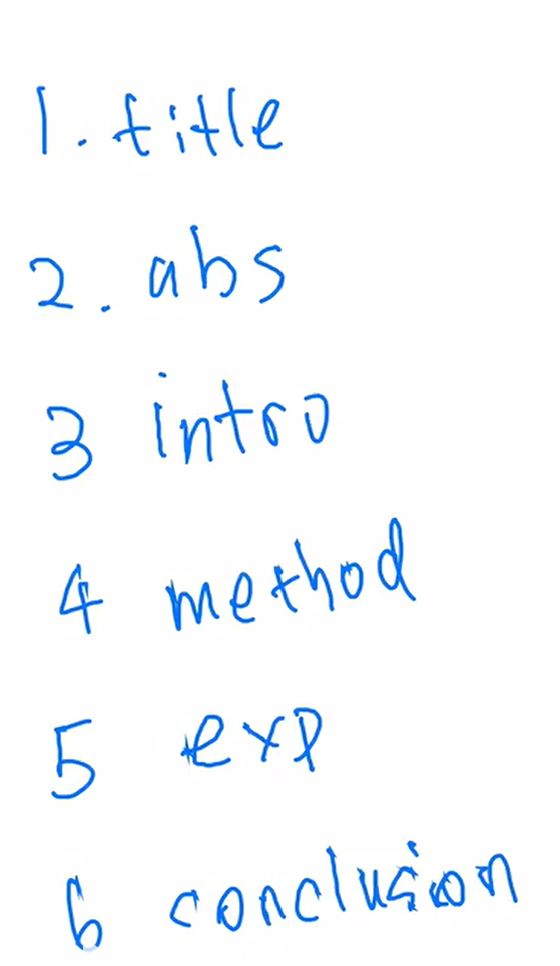 1. title
2. abs
3 intro
4 method
5 exp
6 conclusion